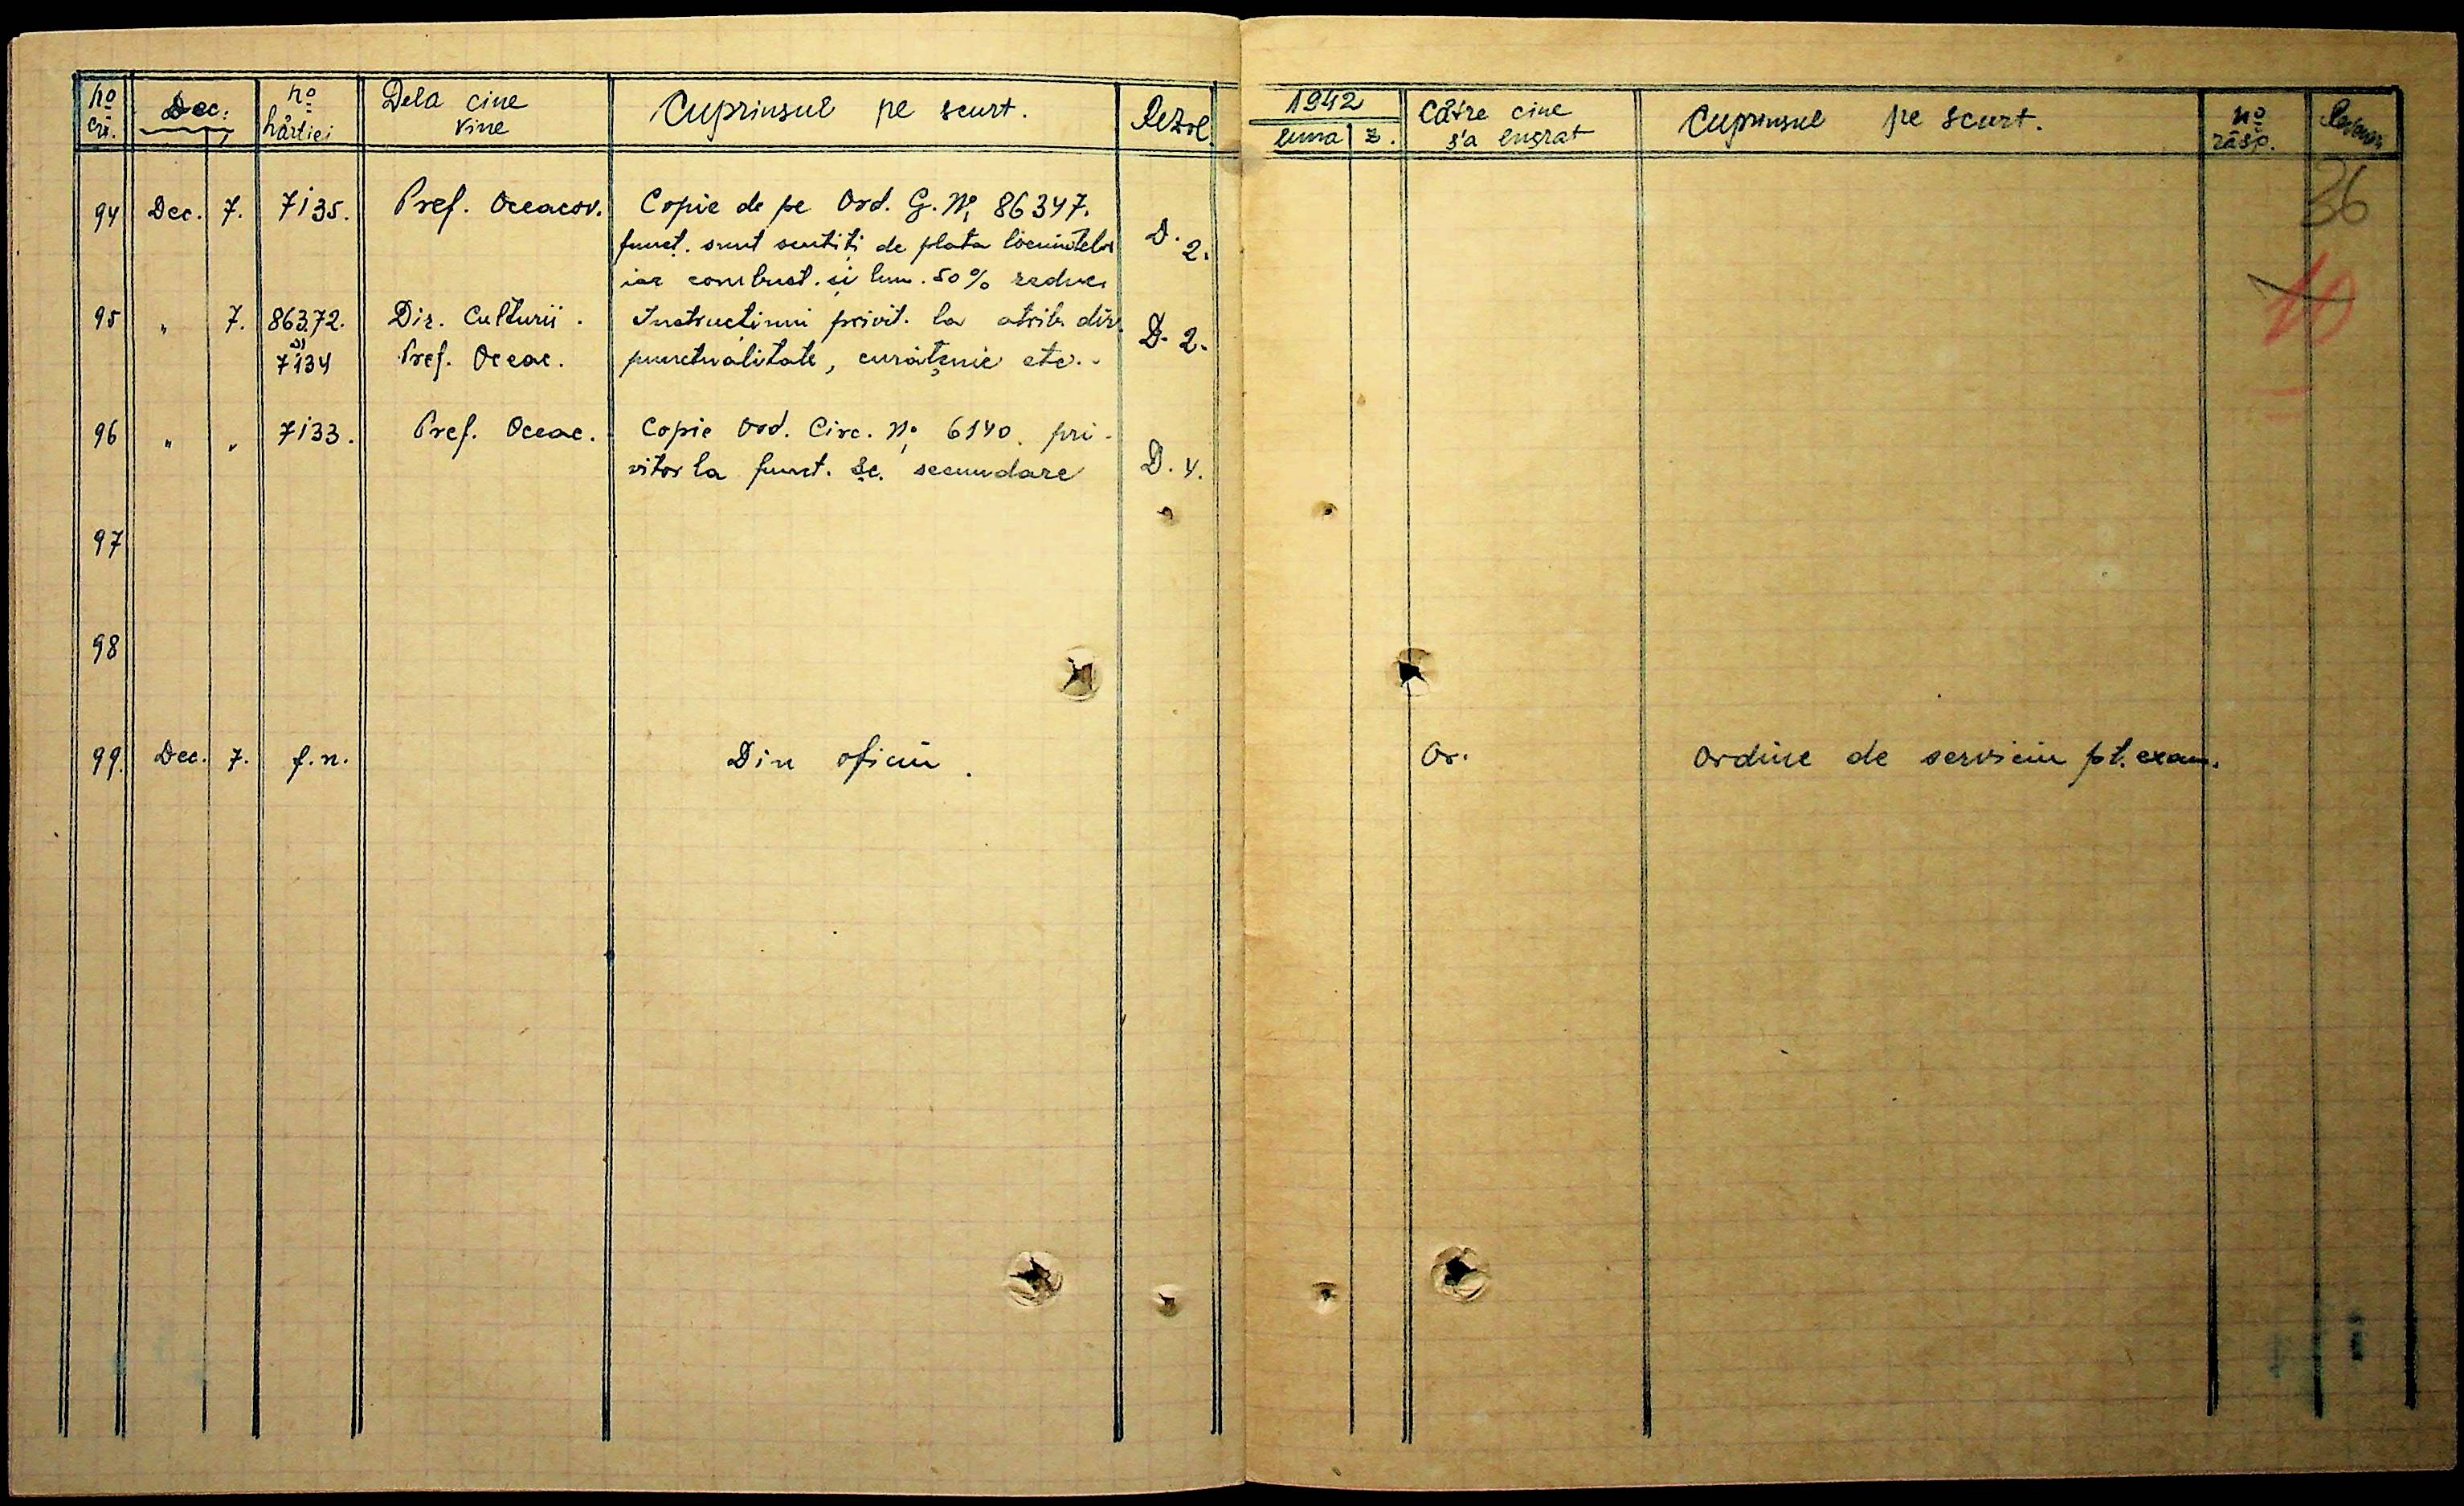 No crt. Dec. No hârtiei Dela cine vine Cuprinsul pe scurt. Rezol.
94 Dec. 7. 7135. Pref. Oceacov. Copie de pe Ord. G. No 86347.
funcț. sunt scutiți de plata locuintelor D. 2.
iar combust. si lum. 50%
95 " 7. 86372. Dir. Culturii. Instrucțiuni privit. la atrib. dir.
7134 Pref. Oceac. punctualitate, curățenie etc. D. 2.
96 " " 7133. Pref. Oceac. Copie Ord. Circ. No 6140. pri-
vitor la funct. Șc. secundare D. 4.
97
98
99. Dec. 7. f.n. Din oficiu.
1942 luna z. Către cine s'a Cuprinsul pe scurt. No răsp.
36
10
Or. Ordine de serviciu pt. exam.